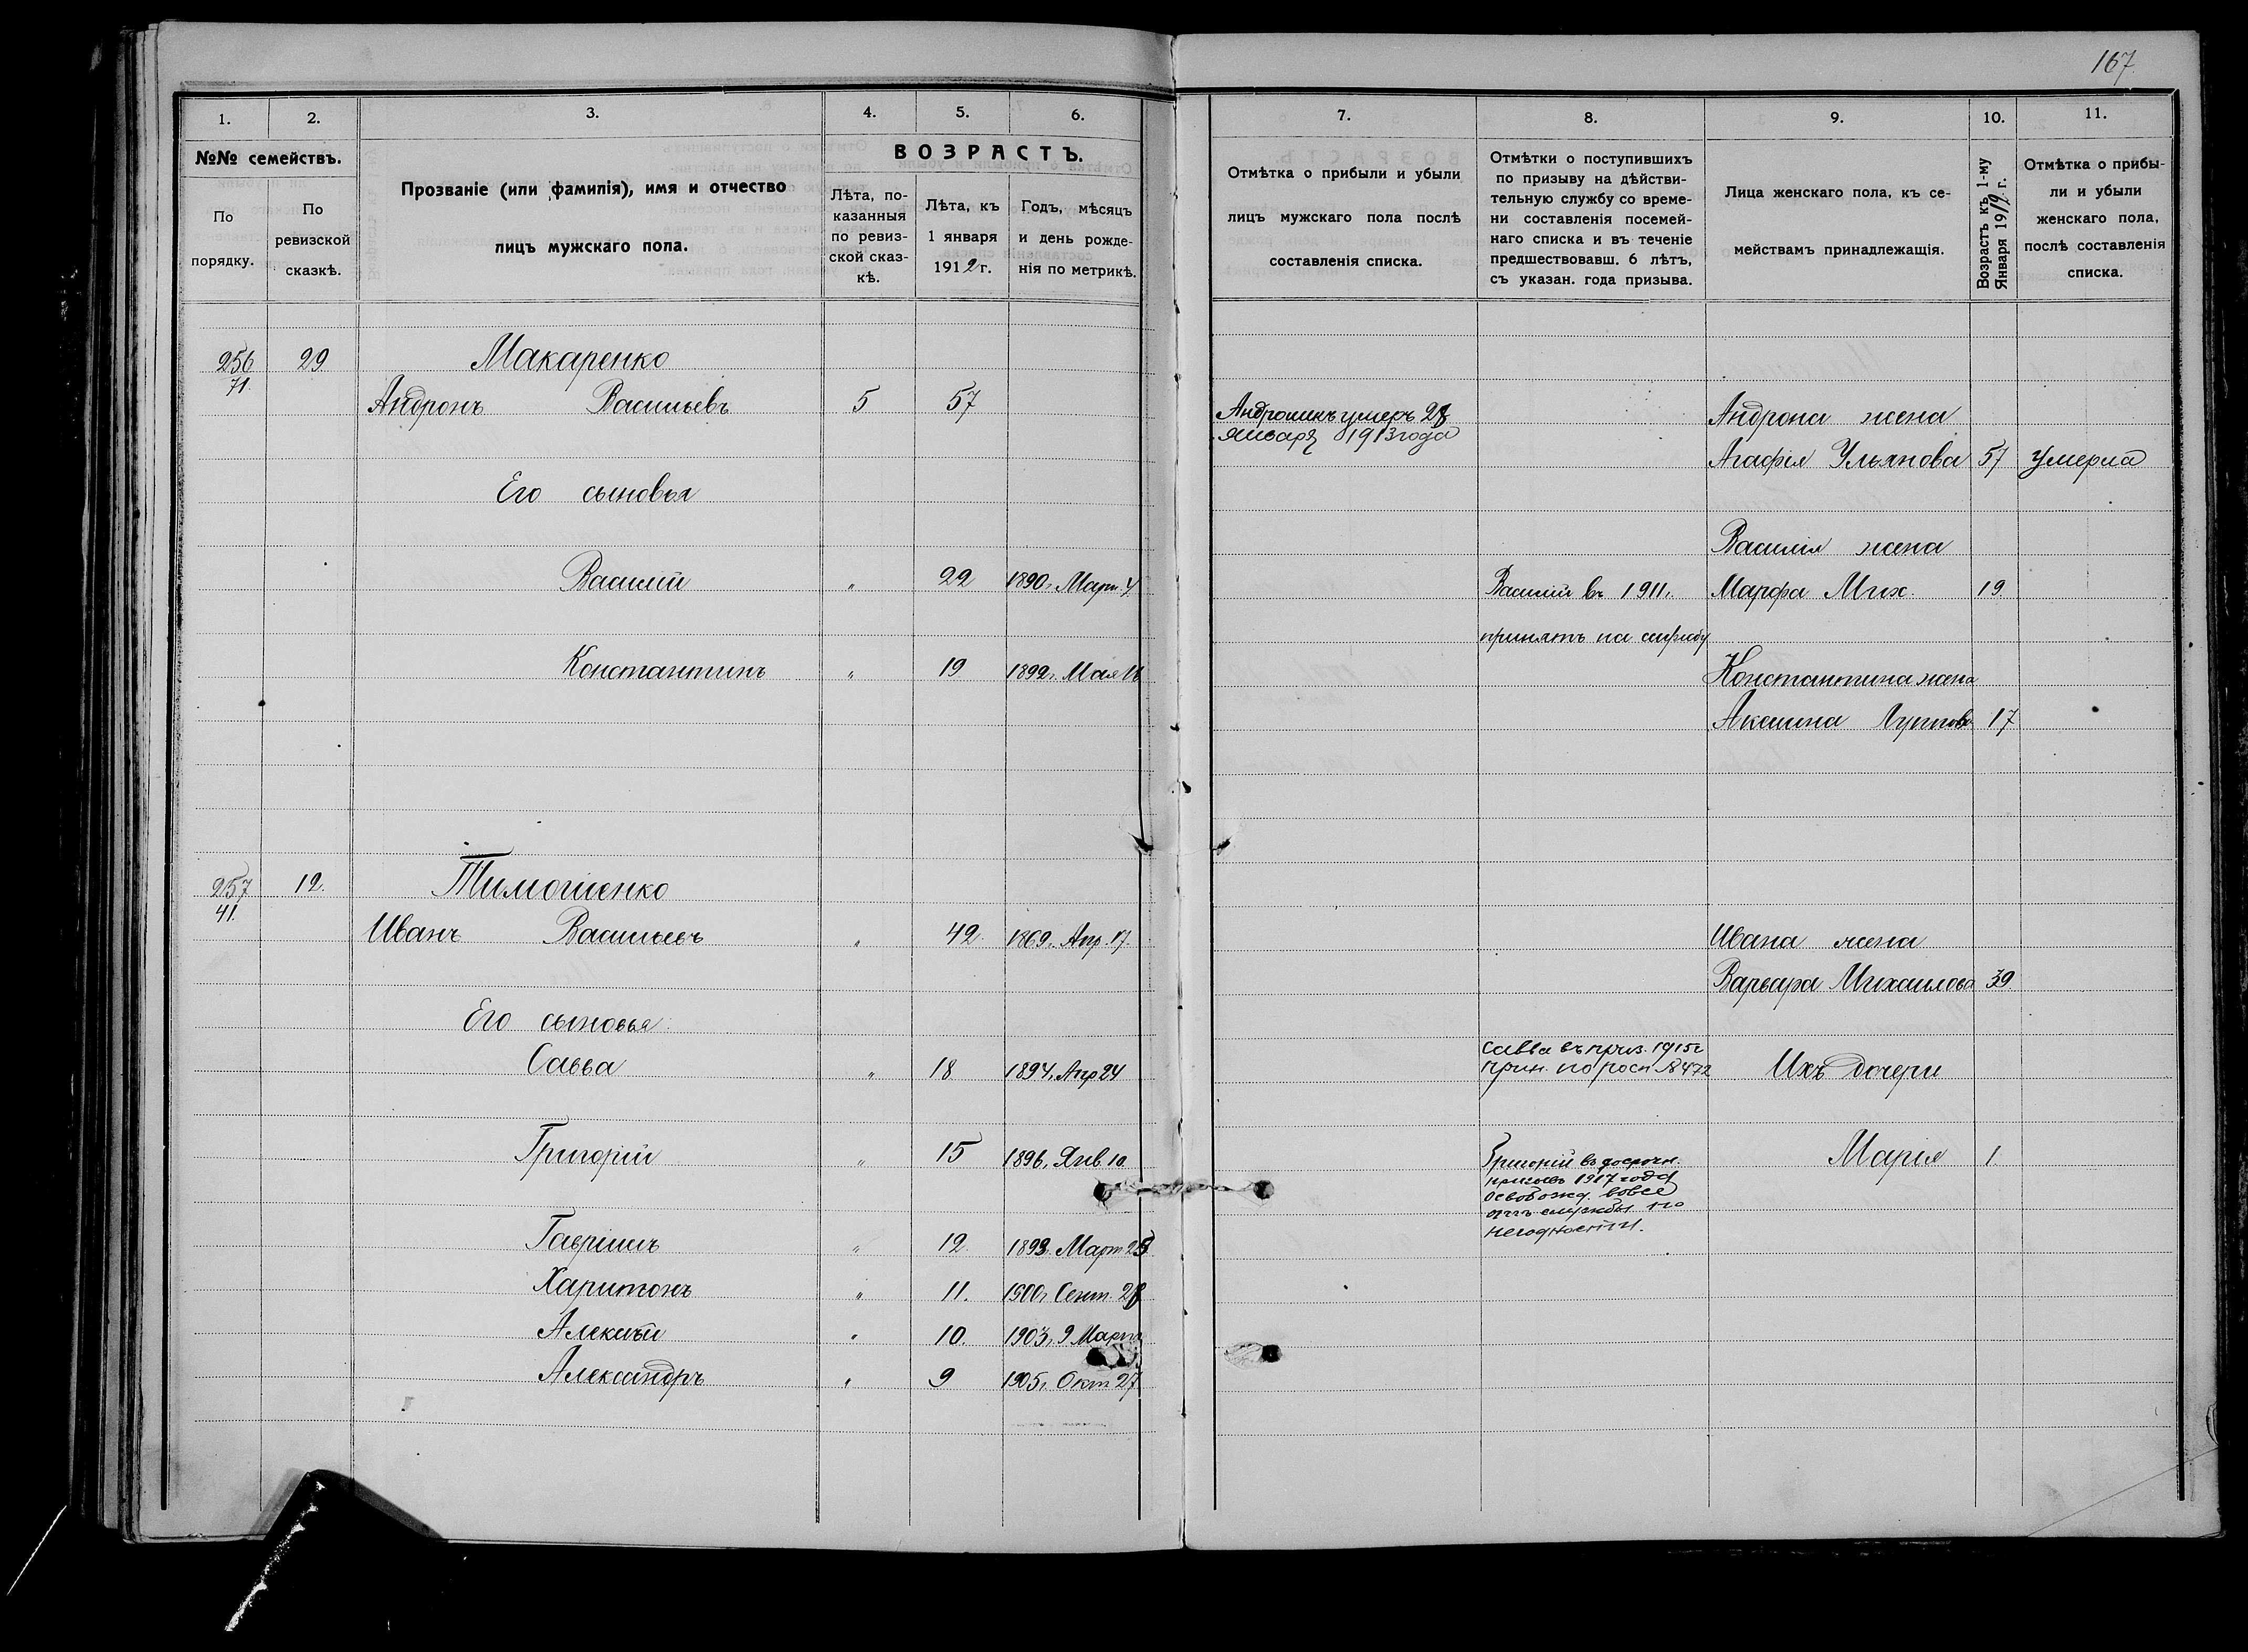 167
1. 2. 3. 4. 5. 6.
№№ семействъ.
По порядку.
По ревизской сказкѣ.
Прозваніе (или фамилія), имя и отчество
лицъ мужскаго пола.
ВОЗРАСТЪ.
Лѣта, по-
казанныя
по ревиз-
ской сказ-
кѣ.
Лѣта, къ
1 января
1912 г.
Годъ, мѣсяцъ
и день рожде-
нія по метрикѣ.
256 29 Макаренко
71.
Андронъ Васильевъ 5 57
Его сыновья
Василій " 22 1890 г. Март. 4
Константинъ " 19 1892 г. Мая
257 12. Тимошенко
41.
Иванъ Васильевъ " 42. 1869 г. Апр. 17.
Его сыновья
Савва " 18 1894 г. Апр 24
Григорій " 15 1896 г. Янв. 10
Гавріилъ " 12. Март 25
Харитонъ " 11. 1900 г. Сент. 28
Алексѣй " 10. 1903 г. 9 Марта
Александръ " 9 1905 г. Окт 27
7. 8. 9. 10. 11.
Отмѣтка о прибыли и убыли
лицъ мужскаго пола послѣ
составленія списка.
Отмѣтки о поступившихъ
по призыву на дѣйстви-
тельную службу со време-
ни составленія посемей-
наго списка и въ теченіе
предшествовавш. 6 лѣтъ,
съ указан. года призыва.
Лица женскаго пола, къ се-
мействамъ принадлежащія.
Возрастъ къ 1-му
Января 1912 г.
Отмѣтка о прибы-
ли и убыли
женскаго пола,
послѣ составленія
списка.
умеръ 28
января 1913 года
Андрона жена
Агафія Ульянова 57 умерла
Василія жена
Василій въ 1911 г. Марфа Мих. 19
принятъ на службу
Константина жена
Аксинья 17
Ивана жена
Варвара Михаилова 39
Савва въ приз. 1915 г
прин. по росп № 472
Ихъ дочери
Григорій въ досрочн. Марія 1
призывъ 1917 года
освобожд. вовсе
отъ службы по
негодности.